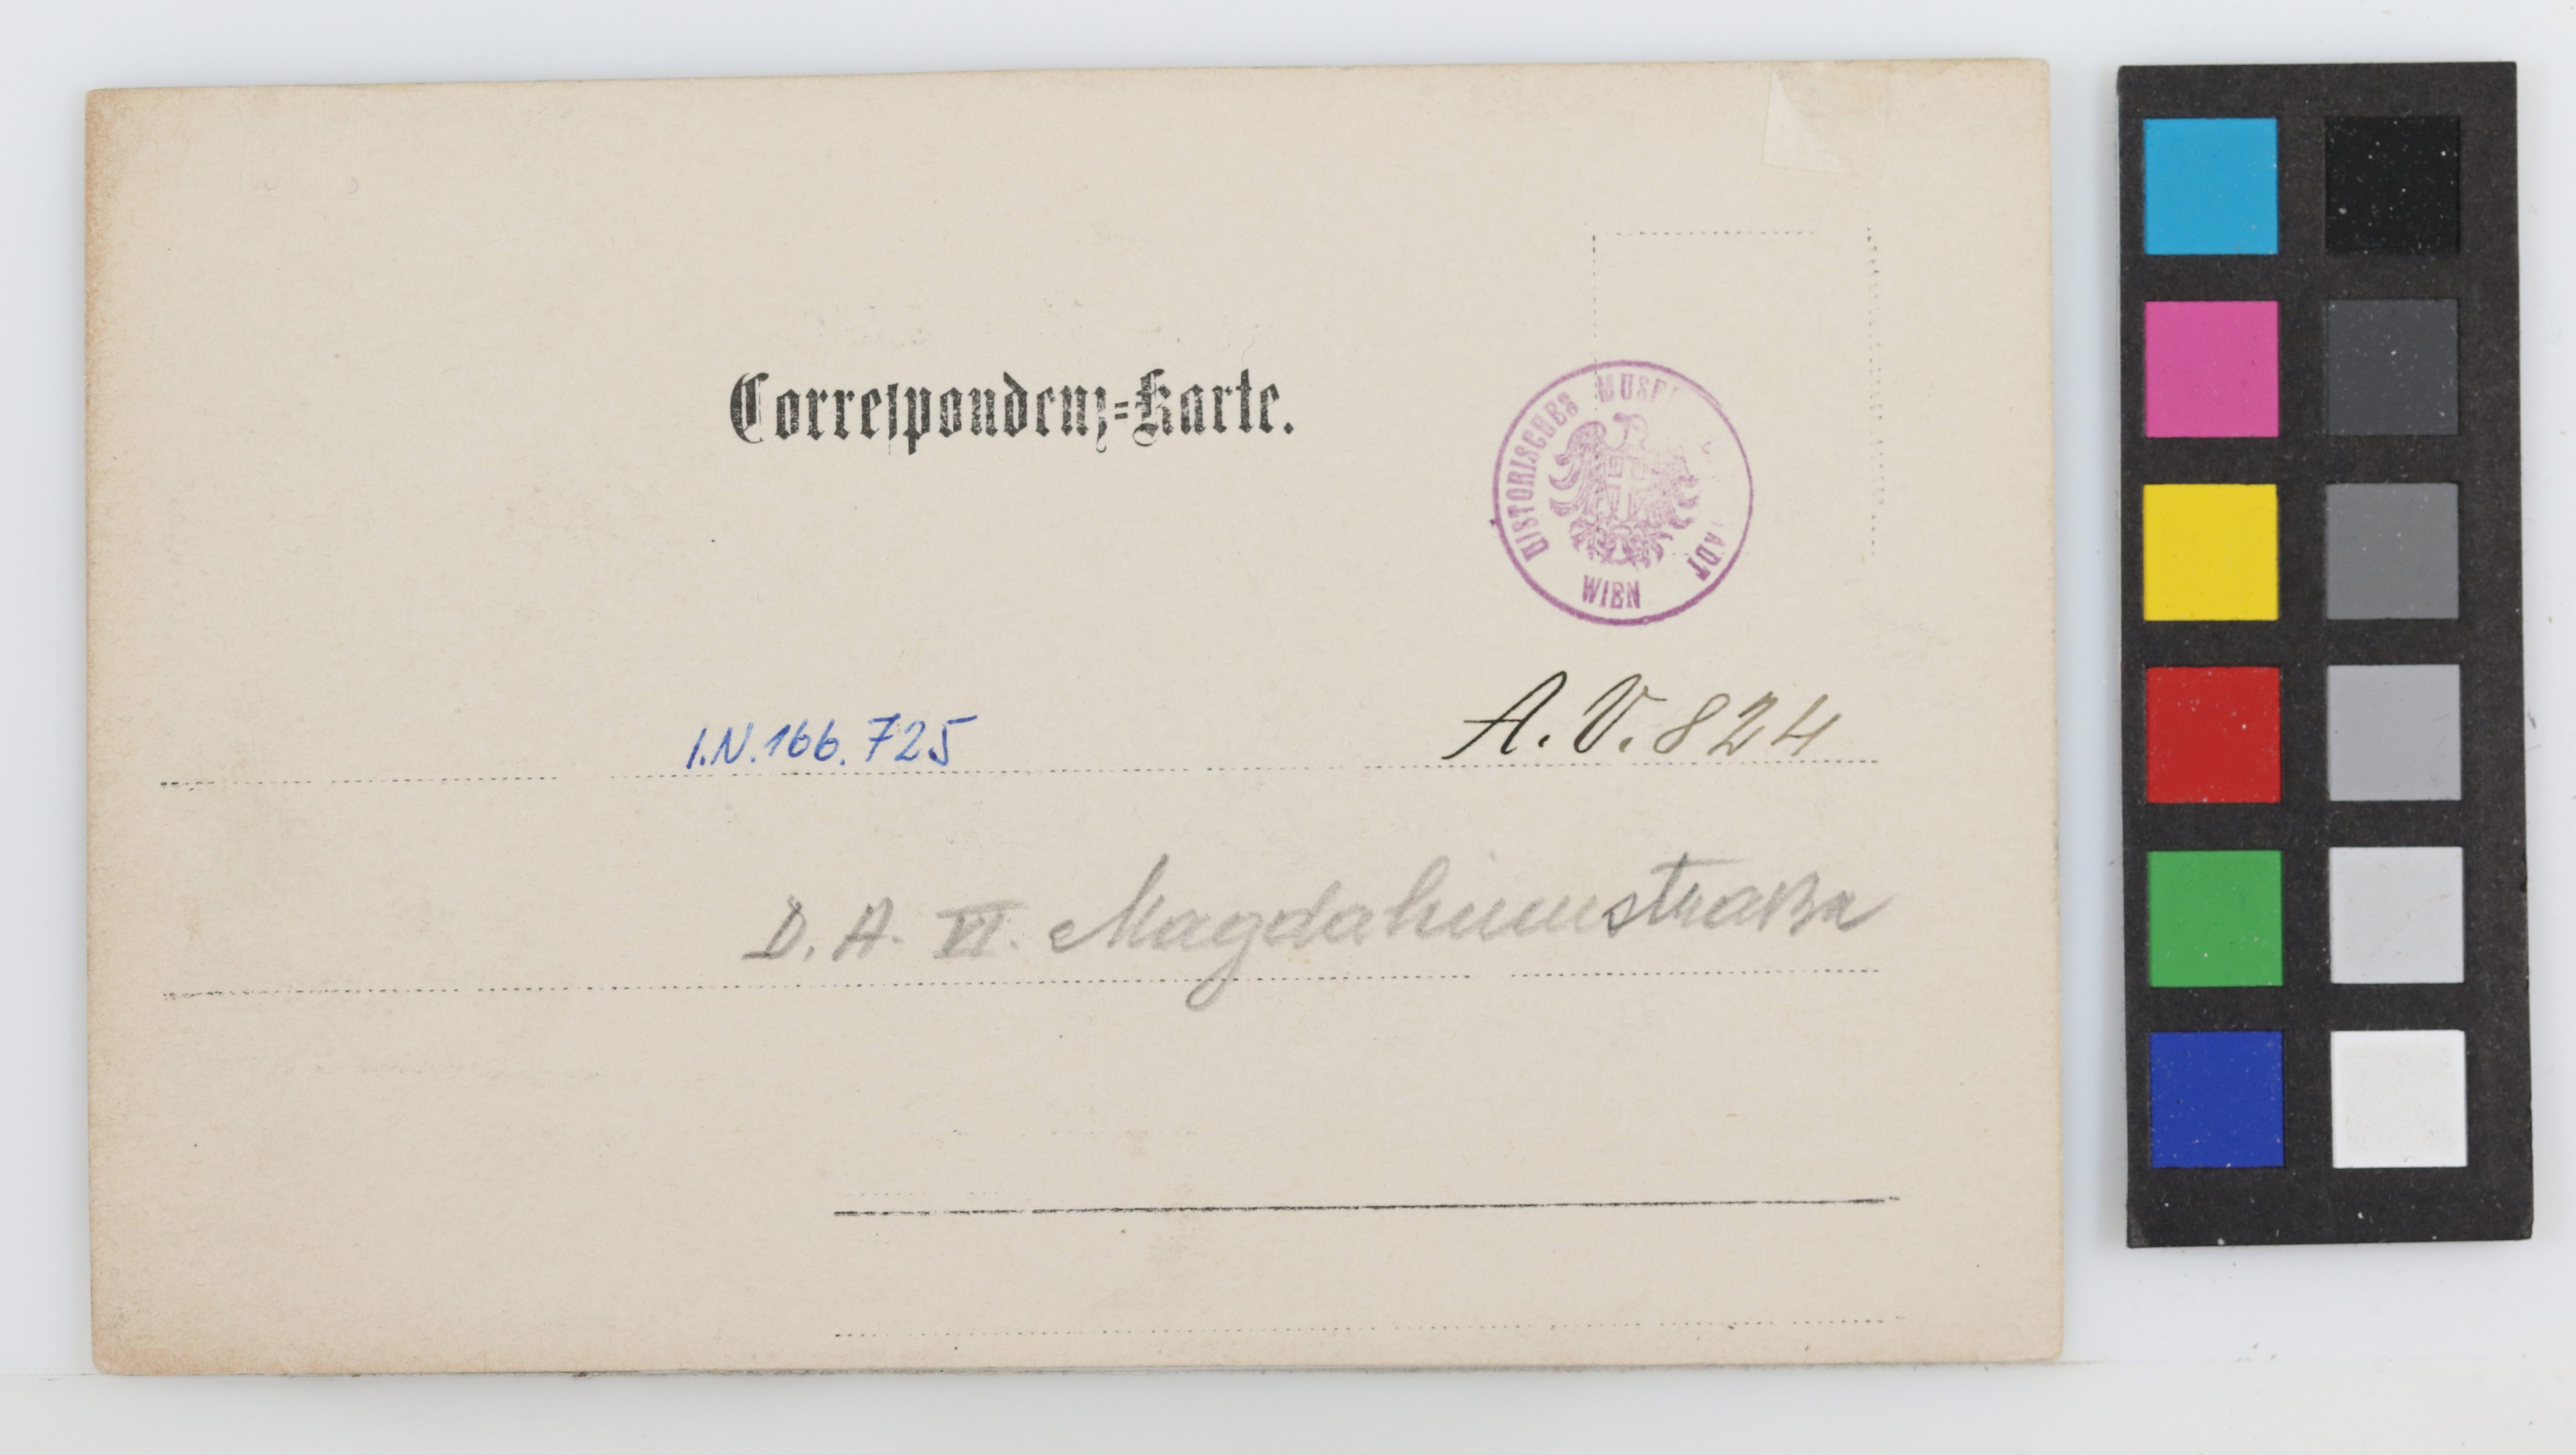 Correspondenz=Karte.
HISTORISCHES MUSE
ADT
WIEN
I.N.166.725
A.V.824
D. A. VI. Magdalenenstraße